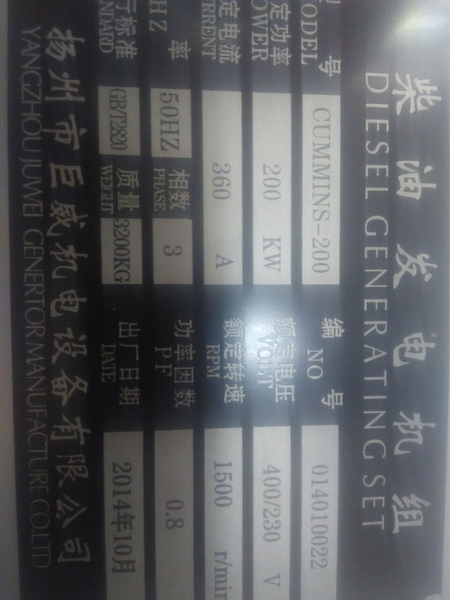 柴油发电机组
DIESEL GENERATING SET
号 CUMMINS-200 编号 014010022
MODEL NO
定功率 200 KW 额定电压 400/230 V
POWER VOLT
定电流 360 A 额定转速 1500 r/min
RRENT RPM
率 50HZ 相数 3 功率因数 0.8
HZ PHASE PF
行标准 GB/T2820 质量 3200KG 出厂日期 2014年10月
ANDARD WEIGHT DATE
扬州市巨威机电设备有限公司
YANGZHOU JUWEI GENERTOR MANUFACTURE CO.LTD